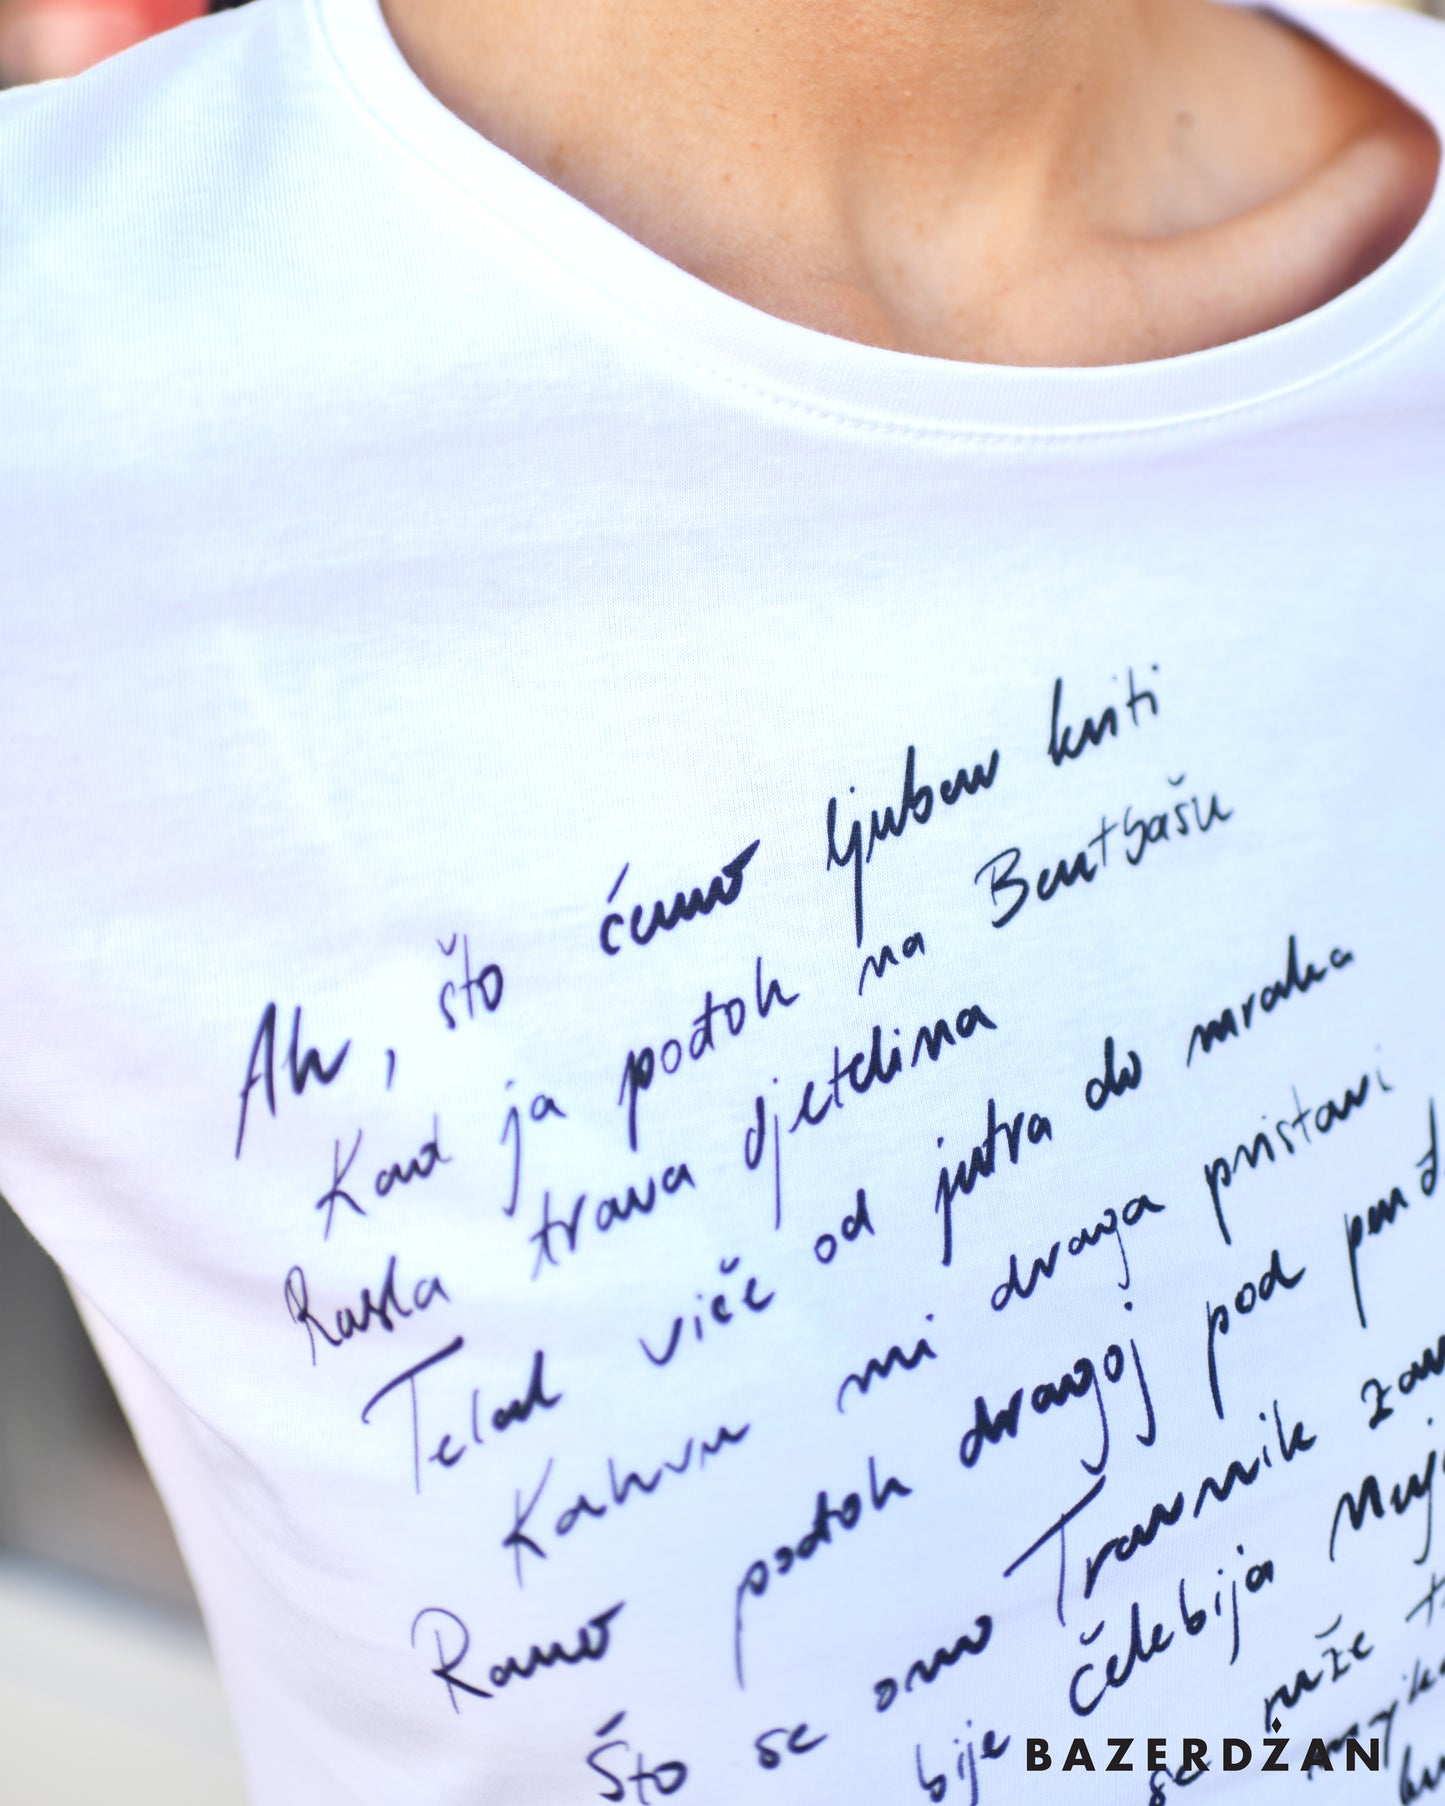 Ah, što ćemo ljubav kriti
Kad ja pođoh na Bentbašu
Rasla trava djetelina
Telal viče od jutra do mraka
Kahvu mi draga pristavi
Rano pođoh dragoj pod
Što se ono Travnik
bije čelebija
se niže
BAZERDŽAN